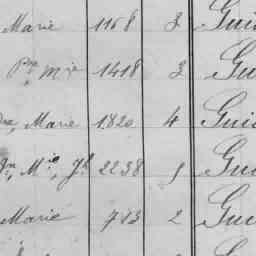 Marie 1168 3 Gui
Pre Mie 1418 3 Gui
Marie 1820 4 Gui
Jn, Mie, Jh 2238 9 Gui
Marie 713 2 Gui